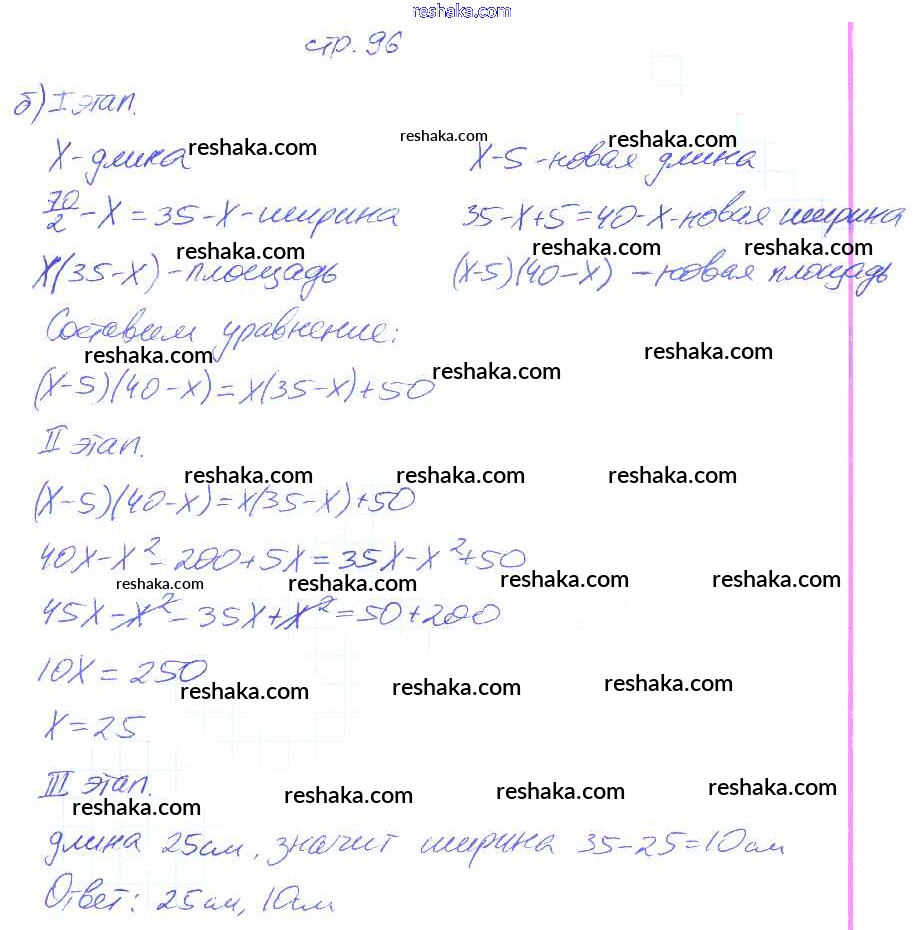 reshaka.com
стр. 96
б) I этап.
X - длина reshaka.com reshaka.com X - 5 - новая длина reshaka.com
70/2 - X = 35 - X - ширина 35 - X + 5 = 40 - X - новая ширина
reshaka.com reshaka.com reshaka.com
X(35 - X) - площадь (X - 5)(40 - X) - новая площадь
Составим уравнение:
reshaka.com reshaka.com
(X - 5)(40 - X) = X(35 - X) + 50 reshaka.com
II этап.
reshaka.com reshaka.com reshaka.com
(X - 5)(40 - X) = X(35 - X) + 50
40X - X² - 200 + 5X = 35X - X² + 50
reshaka.com reshaka.com reshaka.com reshaka.com
45X - X² - 35X + X² = 50 + 200
10X = 250
reshaka.com reshaka.com reshaka.com
X = 25
III этап.
reshaka.com reshaka.com reshaka.com reshaka.com
длина 25см, значит ширина 35 - 25 = 10см
Ответ: 25см, 10см